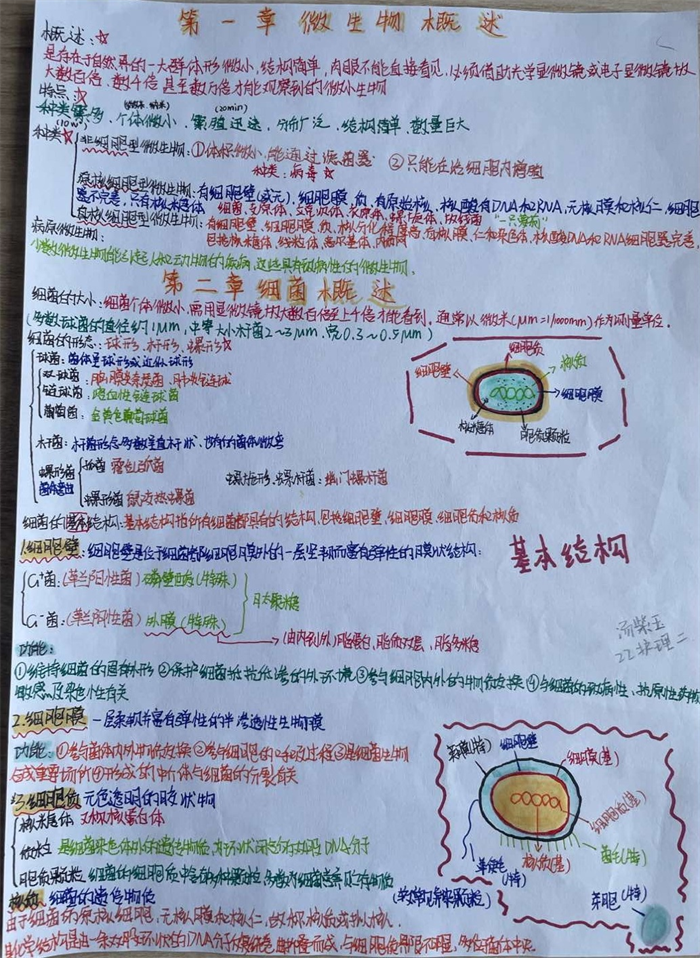 第一章 微生物概述
概述:☆
是存在于自然界的一大群体形微小,结构简单,肉眼不能直接看见,必须借助光学显微镜或电子显微镜放
大数百倍、数千倍 甚至数万倍才能观察到的微小生物
特点:☆
种类繁多、个体微小、繁殖迅速、分布广泛、结构简单 数量巨大
(20min)
种类☆
非细胞型微生物:①体积微小,能通过滤菌器 ②只能在活细胞内增殖
种类:病毒☆
原核细胞型微生物:有细胞壁
细胞膜、质、有原始核、核酸有DNA和RNA、无核膜和核仁、细胞
器不完善,只有核糖体
细菌、支原体、立克次体、衣原体、螺旋体、放线菌
真核细胞型微生物:有细胞壁、细胞膜、质、核分化程度高、有核膜、仁和染色体、核酸DNA和RNA细胞器完善、
包括核糖体、线粒体、高尔基体、内质网
病原微生物:
少数微生物能引起人和动植物的疾病,这些具有致病性的微生物.
第二章 细菌概述
细菌的大小:细菌个体微小,需用显微镜放大数百倍至上千倍才能看到. 通常以微米(μm=1/1000mm)作为测量单位.
(多数球菌的直径约1μm,中等大小杆菌2~3μm,宽0.3~0.5μm)
细菌的形态:球形、杆形、螺形☆
球菌:菌体呈球形或近似球形
双球菌:脑膜炎奈瑟菌、肺炎链球
链球菌:溶血性链球菌
葡萄菌:金黄色葡萄球菌
杆菌:杆菌形态多数呈直杆状,也有的菌体微弯
螺形菌
菌体弯曲
弧菌 霍乱弧菌
螺形菌 鼠咬热螺菌
螺旋形、螺杆菌:幽门螺杆菌
细胞质
细胞壁
核质
细胞膜
核糖体
胞质颗粒
细菌的基本结构:基本结构指所有细菌都具有的结构,包括细胞壁、细胞膜、细胞质和核质
基本结构
1.细胞壁:细胞壁是位于细菌细胞膜外的一层坚韧而富有弹性的膜状结构:
G+菌:(革兰阳性菌) 磷壁酸(特殊)
肽聚糖
G-菌:(革兰阴性菌) 外膜(特殊)
(由内到外)脂蛋白、脂质双层、脂多糖
汤紫玉
22护理二
功能:
①维持细菌的固有外形 ②保护细菌抵抗低渗的外环境 ③参与细胞内外的物质交换 ④与细菌的致病性、抗原性
及染色性有关
2.细胞膜 一层柔韧并富有弹性的半渗透性生物膜
功能:①参与菌体内外物质交换 ②参与细胞的呼吸过程 ③是细菌生物
合成重要场所 ④形成的中介体与细菌的分裂有关
3.细胞质 无色透明的胶状物
核糖体 又称核蛋白体
质粒 是细菌染色体外的遗传物质,为环状闭合的双股DNA分子
胞质颗粒 细菌的细胞质中含有
(较常见异染颗粒)
核质 细菌的遗传物质
由于细菌为原核细胞,无核膜和核仁,故称核质或拟核.
其化学结构是由一条双股环状的DNA分子反复卷曲折叠而成,与细胞质界限不明显,多位菌体中央.
荚膜(特)
细胞壁
细胞膜(基)
细胞质(基)
菌毛(特)
核质(基)
鞭毛(特)
芽胞(特)